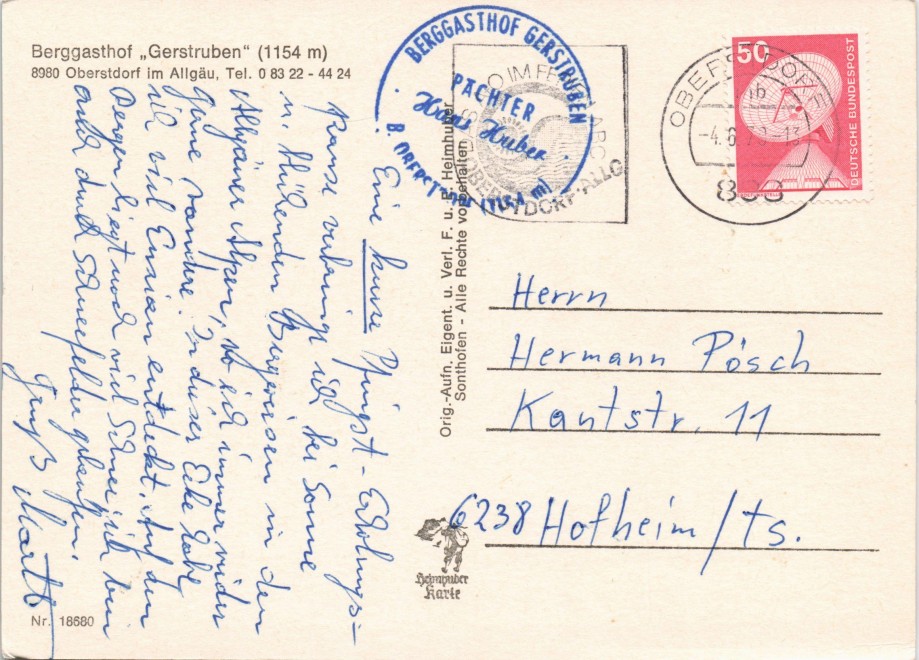 Berggasthof „Gerstruben" (1154 m)
8980 Oberstdorf im Allgäu, Tel. 0 83 22 - 44 24
BERGGASTHOF GERSTRUBEN
PÄCHTER
Hans Huber
B. OBERSTDORF (1154 m)
OBERSTDORF
-4.6.
50
DEUTSCHE BUNDESPOST
Eine kurze Pfingst-Erholungs-
pause verbringe ich bei Sonne
u. blühenden Bergwiesen in den
Allgäuer Alpen, wo ich immer wieder
gerne wandere. In dieser Ecke habe
ich viel Enzian entdeckt. Auf den
Bergen liegt noch viel Schnee, ich bin
auch durch Schneefelder gelaufen.
Gruß
Orig.-Aufn. Eigent. u. Verl. F. u. E. Heimhuber
Sonthofen - Alle Rechte vorbehalten
Herrn
Hermann Pösch
Kantstr. 11
6238 Hofheim/Ts.
Heimhuber
Karte
Nr. 18680